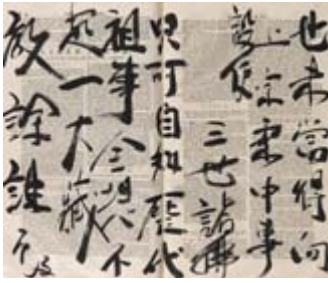 也未當得向
上宗乘中事
設使
三世諸佛
只可自知歷代
祖師全提不
起一大藏
教詮註不及